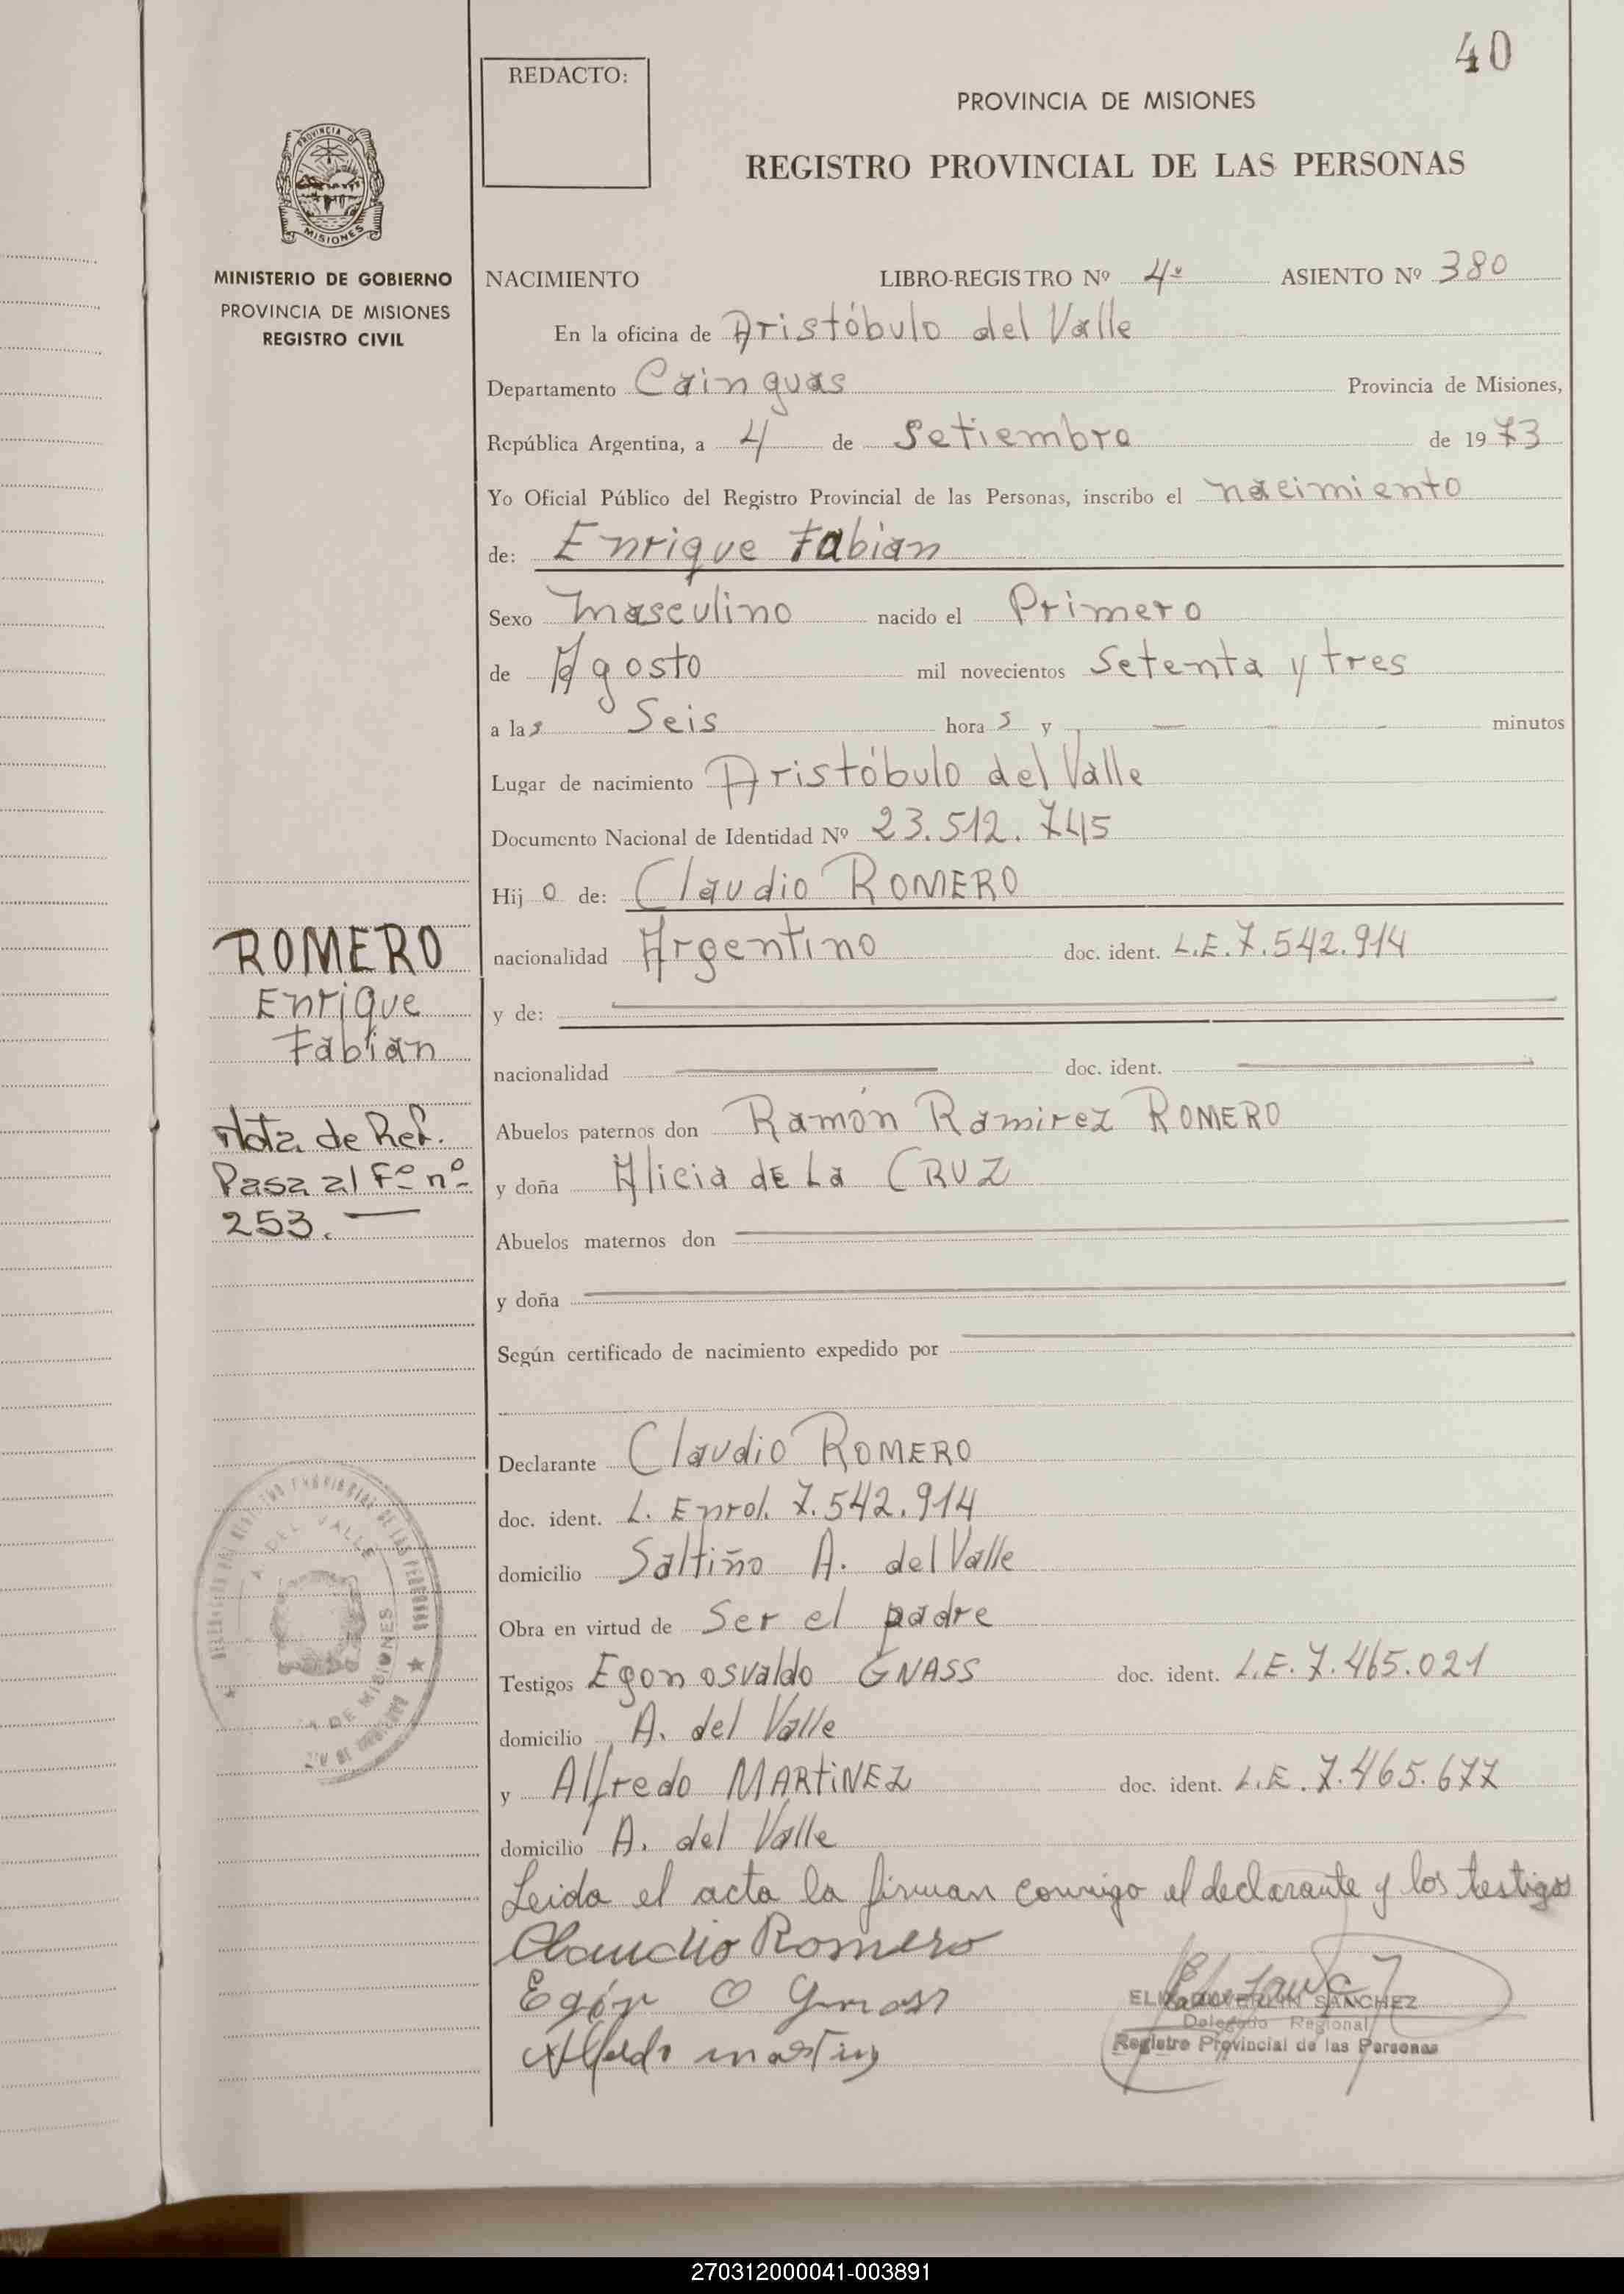 40
REDACTO:
PROVINCIA DE MISIONES
REGISTRO PROVINCIAL DE LAS PERSONAS
PROVINCIA DE
MISIONES
MINISTERIO DE GOBIERNO
PROVINCIA DE MISIONES
REGISTRO CIVIL
NACIMIENTO LIBRO-REGISTRO Nº 4º ASIENTO Nº 380
En la oficina de Aristóbulo del Valle
Departamento Cainguas Provincia de Misiones,
República Argentina, a 4 de Setiembre de 1973
Yo Oficial Público del Registro Provincial de las Personas, inscribo el nacimiento
de: Enrique Fabian
Sexo masculino nacido el Primero
de Agosto mil novecientos Setenta y tres
a las Seis horas y — — — minutos
Lugar de nacimiento Aristóbulo del Valle
Documento Nacional de Identidad Nº 23.512.745
Hijo de: Claudio ROMERO
nacionalidad Argentino doc. ident. L.E. 7.542.914
y de:
nacionalidad doc. ident.
Abuelos paternos don Ramón Ramirez ROMERO
y doña Alicia de La CRUZ
Abuelos maternos don
y doña
Según certificado de nacimiento expedido por
Declarante Claudio ROMERO
doc. ident. L. Enrol. 7.542.914
domicilio Saltiño A. del Valle
Obra en virtud de Ser el padre
Testigos Egon osvaldo GNASS doc. ident. L.E. 7.465.021
domicilio A. del Valle
y Alfredo MARTiNEZ doc. ident. L.E. 7.465.677
domicilio A. del Valle
Leida el acta la firman conmigo el declarante y los testigos
Claudio Romero
Egón O Gnass
Alfredo martinz
SANCHEZ
Delegado Regional
Registro Provincial de las Personas
ROMERO
Enrique
Fabian
Nota de Ref.
Pasa al Fº nº
253. —
REGISTRO PROVINCIAL DE LAS PERSONAS
A. DEL VALLE
DE MISIONES
270312000041-003891